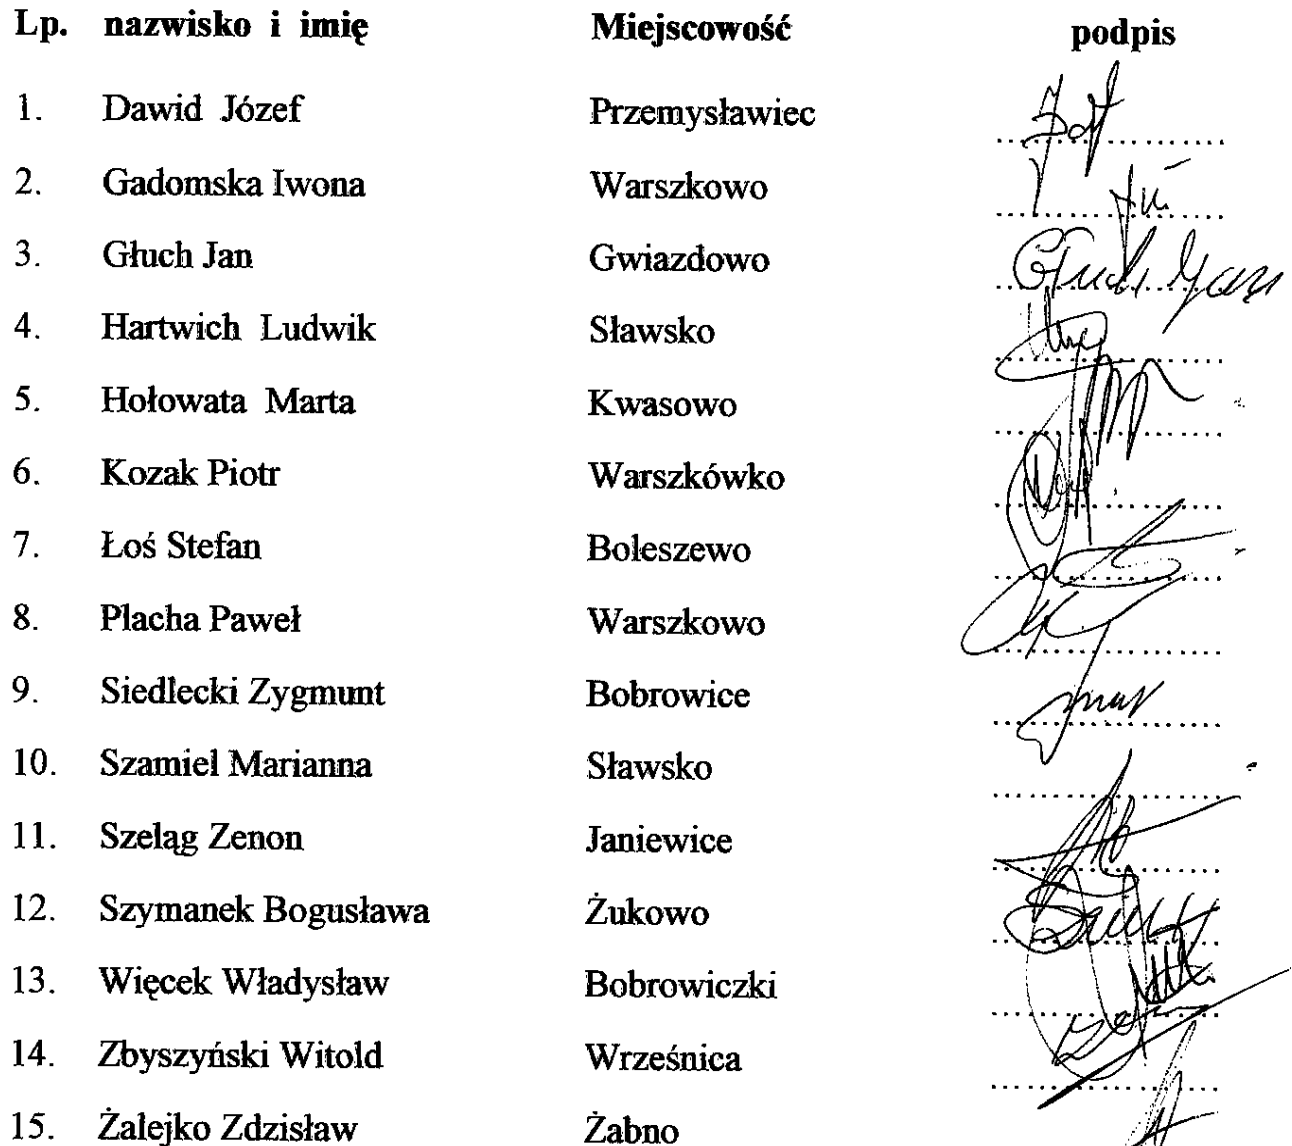 Lp. nazwisko i imię Miejscowość podpis
1. Dawid Józef Przemysławiec
2. Gadomska Iwona Warszkowo
3. Głuch Jan Gwiazdowo Głuch Jan
4. Hartwich Ludwik Sławsko
5. Hołowata Marta Kwasowo
6. Kozak Piotr Warszkówko
7. Łoś Stefan Boleszewo
8. Placha Paweł Warszkowo
9. Siedlecki Zygmunt Bobrowice
10. Szamiel Marianna Sławsko
11. Szeląg Zenon Janiewice
12. Szymanek Bogusława Żukowo
13. Więcek Władysław Bobrowiczki
14. Zbyszyński Witold Wrześnica
15. Żalejko Zdzisław Żabno